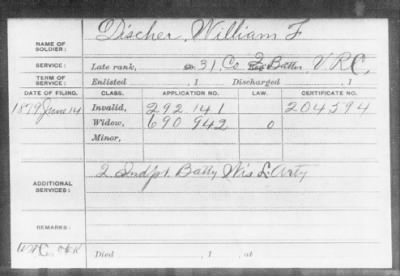 Discher, William F
NAME OF SOLDIER:
SERVICE: Late rank, 31, Co 2 Batta. V.R.C.
TERM OF SERVICE: Enlisted , 1 Discharged , 1
DATE OF FILING. CLASS. APPLICATION NO. LAW. CERTIFICATE NO.
1879 June 14 Invalid, 292 141 204594
Widow, 690 942 0
Minor,
ADDITIONAL SERVICES: 2 Indpt. Batty Wis L. Arty
REMARKS:
Died , 1 , at